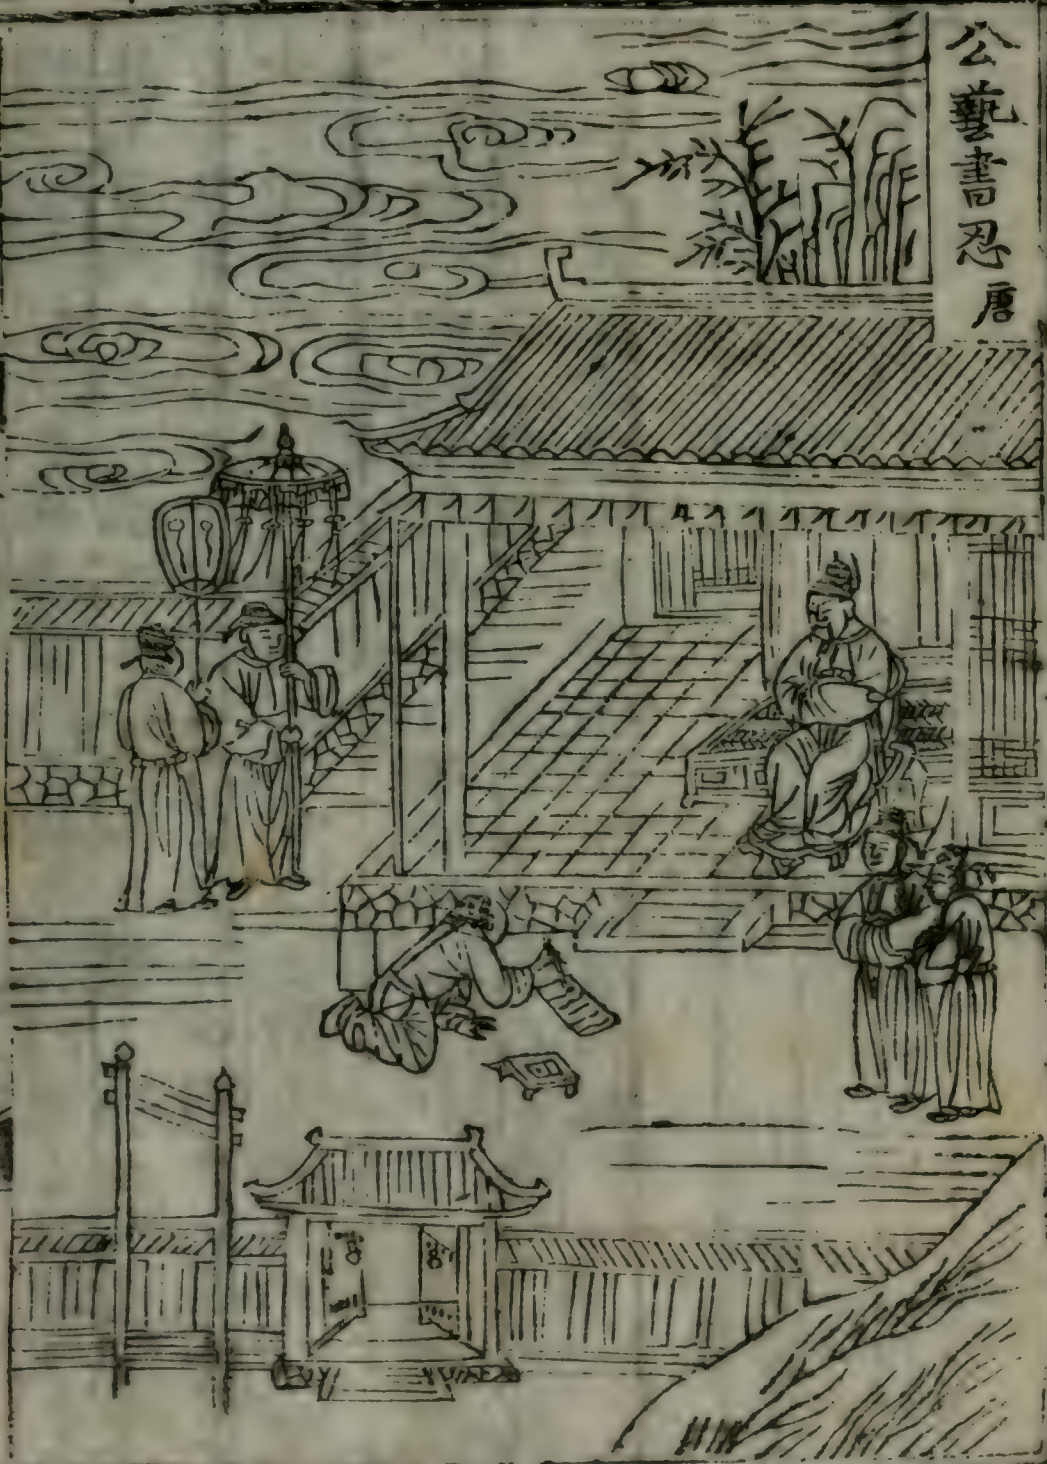 公藝書忍 唐